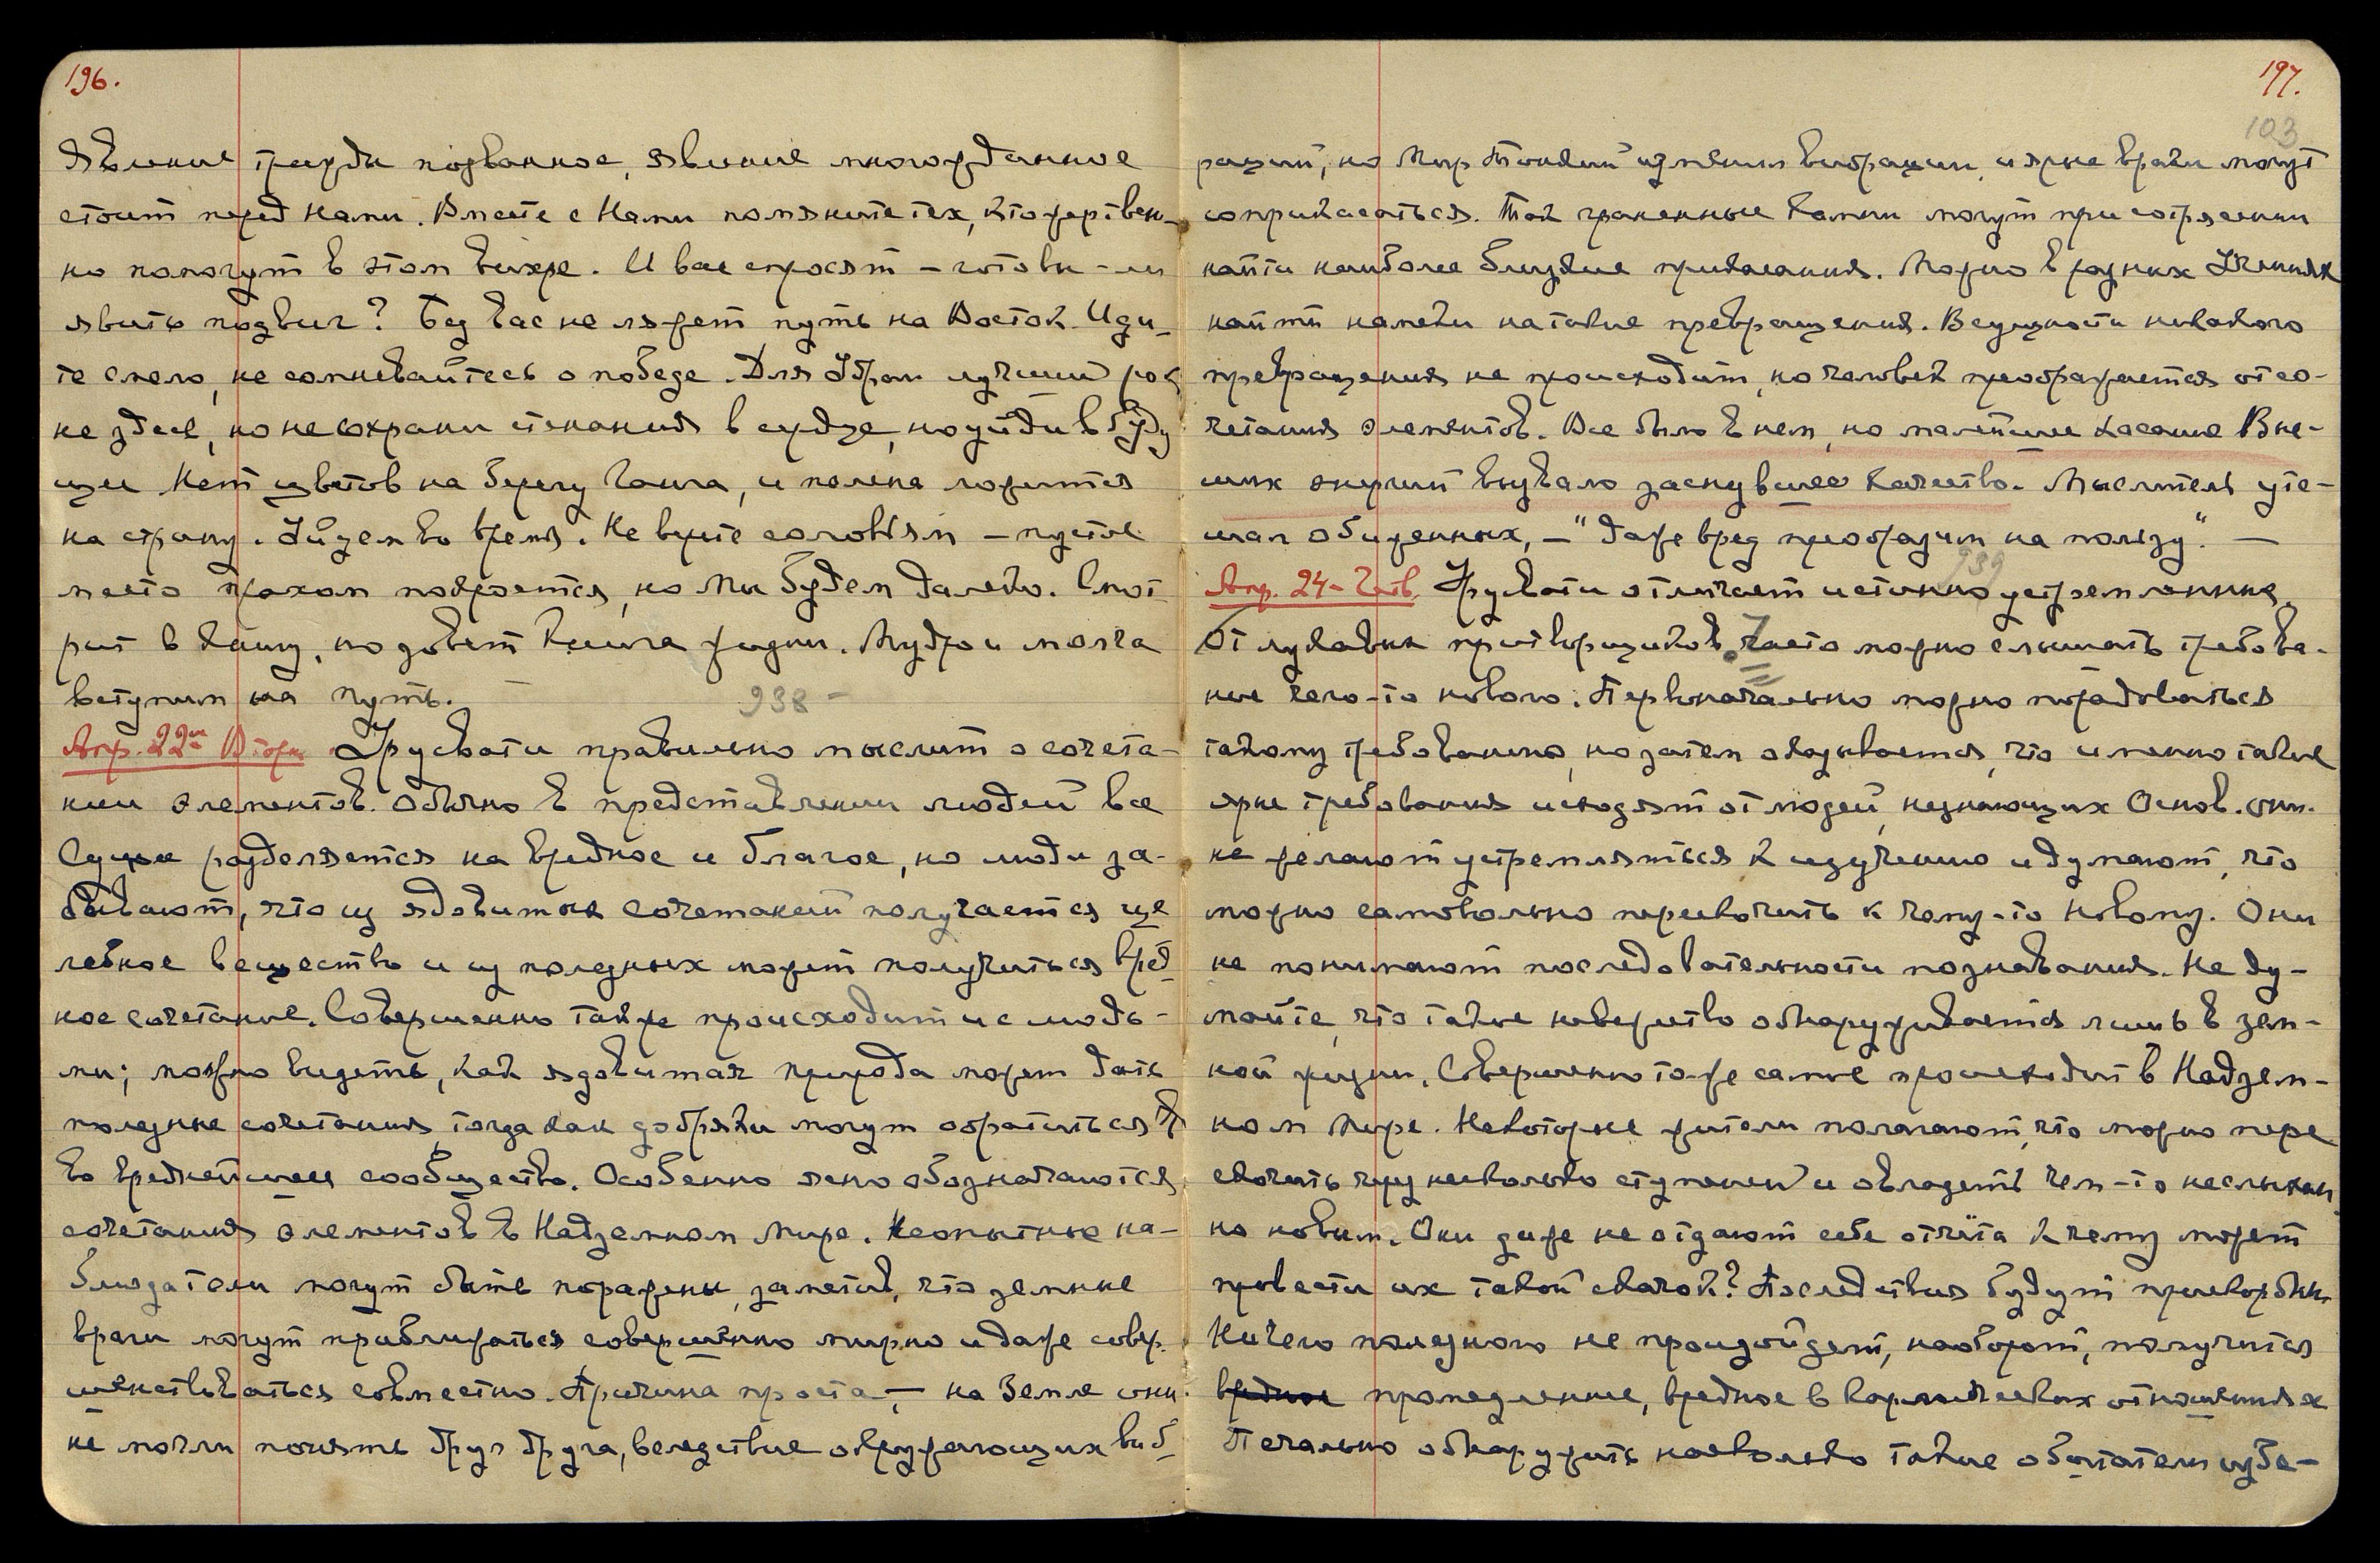 196.
явление правды позванное, явление многожданное
стоит перед нами. Вместе с Нами помяните тех, кто жертвен-
но помогут в этом вихре. И вас спросят – готовы-ли
явить подвиг? Без вас не ляжет путь на Восток. Иди-
те смело, не сомневайтесь о победе. Для Убран лучший
не здесь, но не сохрани стенания в сердце, но уйди в буду
щее Нет цветов на берегу Ганга, и пелена ложится
на страну. Уйдем во время. Не верьте соловьям – пустое
место прахом покроется, но Мы будем далеко. Смот
рит в Чашу, но зовет Книга жизни. Мудро и молча
вступим на путь. –
938 –
Апр. 22го Вторн. Урусвати правильно мыслит о сочета-
нии элементов. Обычно в представлении людей все
Сущее разделяется на вредное и благое, но люди за-
бывают, что из ядовитых сочетаний получается це
лебное вещество и из полезных может получиться вред
ное сочетание. Совершенно также происходит и с людь-
ми; можно видеть, как ядовитая природа может дать
полезные сочетания, тогда как добряки могут обратиться
во вреднейшее сообщество. Особенно ясно обозначаются
сочетания элементов в Надземном Мире. Неопытные на-
блюдатели могут быть поражены, заметив, что земные
враги могут приближаться совершенно мирно и даже совер
шенствоваться совместно. Причина проста, – на Земле они
не могли понять друг друга, вследствие окружающих виб
197.
103
раций, но Мир Тонкий изменил вибрации, и ярые враги могут
соприкасаться. Так граненные камни могут при сотрясении
найти наиболее близкие прикасания. Можно в разных Учениях
найти намеки на такие превращения. В сущности никакого
превращения не происходит, но человек преображается от со-
четания элементов. Все было в нем, но малейшее касание Вне-
ших энергий вызвало заснувшее качество. Мыслитель уте-
шал обиженных, – "даже вред преобразим на пользу". –
939
Апр. 24 – Четв. Урусвати отличает истинно устремленных.
От лукавых притворщиков часто можно слышать требова-
ние чего-то нового. Первоначально можно порадоваться
такому требованию, но затем оказывается, что именно такие
ярые требования исходят от людей, незнающих Основ. Они
не желают устремляться к изучению и думают, что
можно самовольно перескочить к чему-то новому. Они
не понимают последовательности познавания. Не ду-
майте, что такое невежество обнаруживается лишь в зем-
ной жизни. Совершенно то-же самое происходит в Надзем-
ном Мире. Некоторые жители полагают, что можно пере
скочить через несколько ступеней и овладеть чем-то неслыхан
но новым. Они даже не отдают себе отчёта к чему может
провести их такой скачок? Последствия будут прискорбны.
Ничего полезного не произойдет, наоборот, получится
вредное промедление, вредное в кармических отношениях
Печально обнаружить насколько такие обитатели избе-